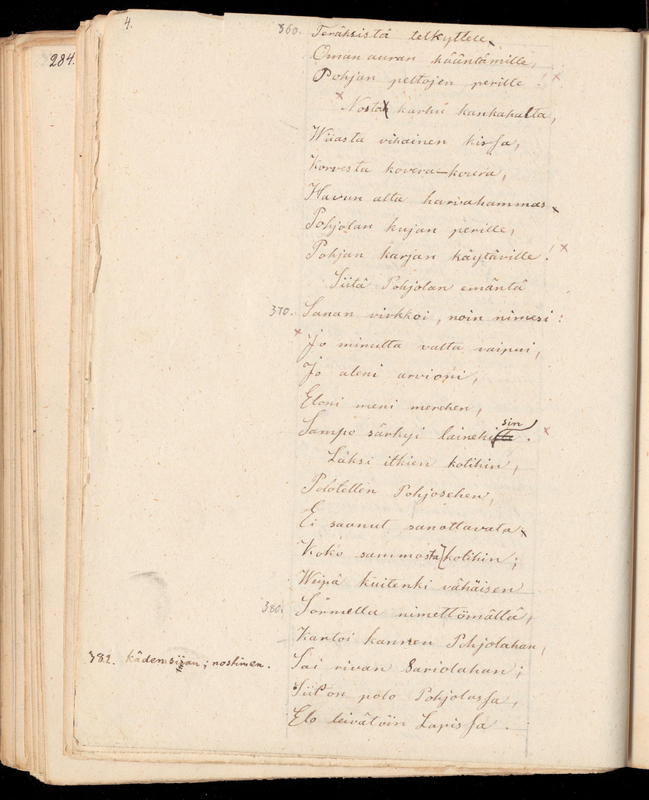 4.
284.
360. Teräksistä telkyttele,
Oman auran kääntämille,
Pohjan peltojen perille!
Nosta karhu kankahalta,
Wiiasta vihainen kissa,
Korvesta kovera-koura,
Havun alta harvahammas
Pohjolan kujan perille,
Pohjan karjan käytäville!
Siitä Pohjolan emäntä
370. Sanan virkkoi, noin nimesi:
Jo minulta valta vaipui,
Jo aleni arvioni,
Eloni meni merehen,
Sampo särkyi lainehisin.
Läksi itkien kotihin,
Polotellen Pohjosehen,
Ei saanut sanottavata
Koko sammosta kotihin;
Weipä kuitenki vähäisen
380. Sormella nimettömällä,
Kantoi kannen Pohjolahan,
382. Kädensijan; nostimen.
Sai rivan Sariolahan;
Siit' on polo Pohjolassa,
Elo leivätöin Lapissa.